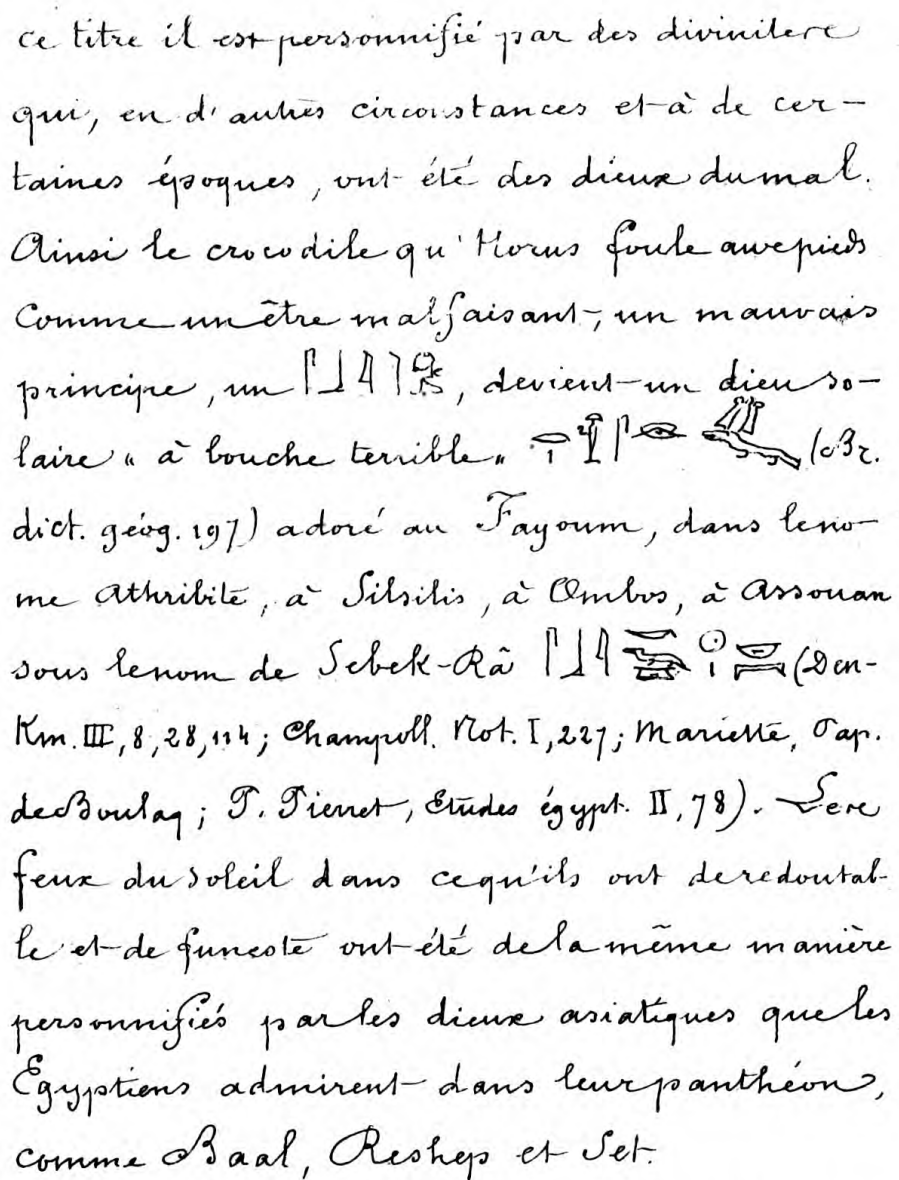 ce titre il est personnifié par des divinités
qui, en d'autres circonstances et à de cer-
taines époques, ont été des dieux du mal.
Ainsi le crocodile qu'Horus foule aux pieds
comme un être malfaisant, un mauvais
principe, un , devient un dieu so-
laire « à bouche terrible » (Br.
dict. géog. 197) adoré au Fayoum, dans le no-
me Athribite, à Silsilis, à Ombos, à Assouan
sous le nom de Sebek-Râ (Den-
Km. III, 8, 28, 114; Champoll. Not. I, 227; Mariette, Pap.
de Boulaq; P. Pierret, Etudes égypt. II, 78). Les
feux du soleil dans ce qu'ils ont de redoutab-
le et de funeste ont été de la même manière
personnifiés par les dieux asiatiques que les
Egyptiens admirent dans leur panthéon,
comme Baal, Reshep et Set.